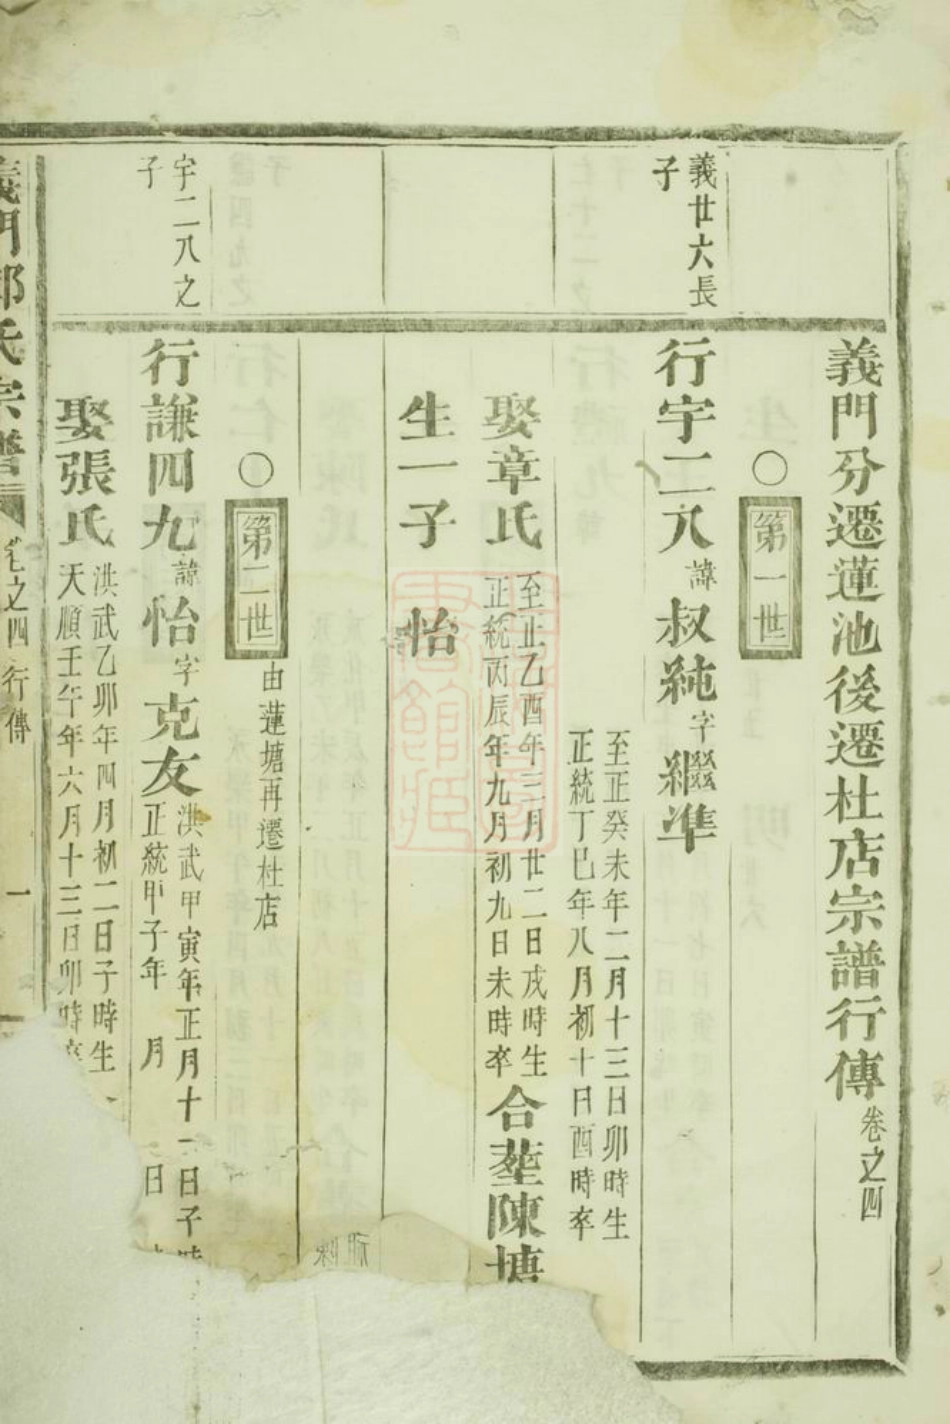 義門分遷蓮池後遷杜店宗譜行傳卷之四
○第一世
義廿六長子
行宇二八諱叔純字繼準
至正癸未年二月十三日卯時生
正統丁巳年八月初十日酉時卒
娶章氏
至正乙酉年三月廿二日戌時生
正統丙辰年九月初九日未時卒
合塟陳塘
生一子 怡
○第二世 由蓮塘再遷杜店
宇二八之子
行謙四九諱怡字克友
洪武甲寅年正月十一日子時
正統甲子年 月 日
娶張氏
洪武乙卯年四月初二日子時生
天順壬午年六月十三日卯時卒
義門鄭氏宗譜 卷之四 行傳 一